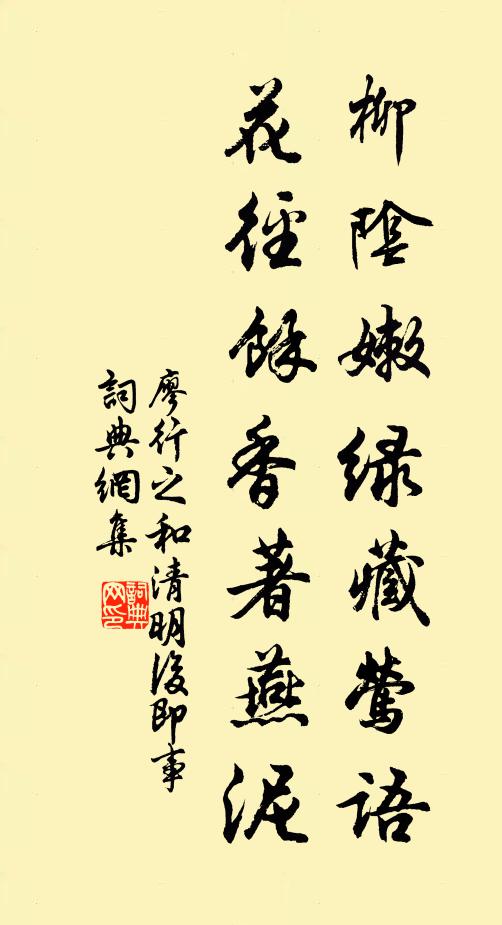 柳陰嫩綠藏鶯語
花徑餘香著燕泥
廖行之和清明後即事
詞典網集
詞典网印